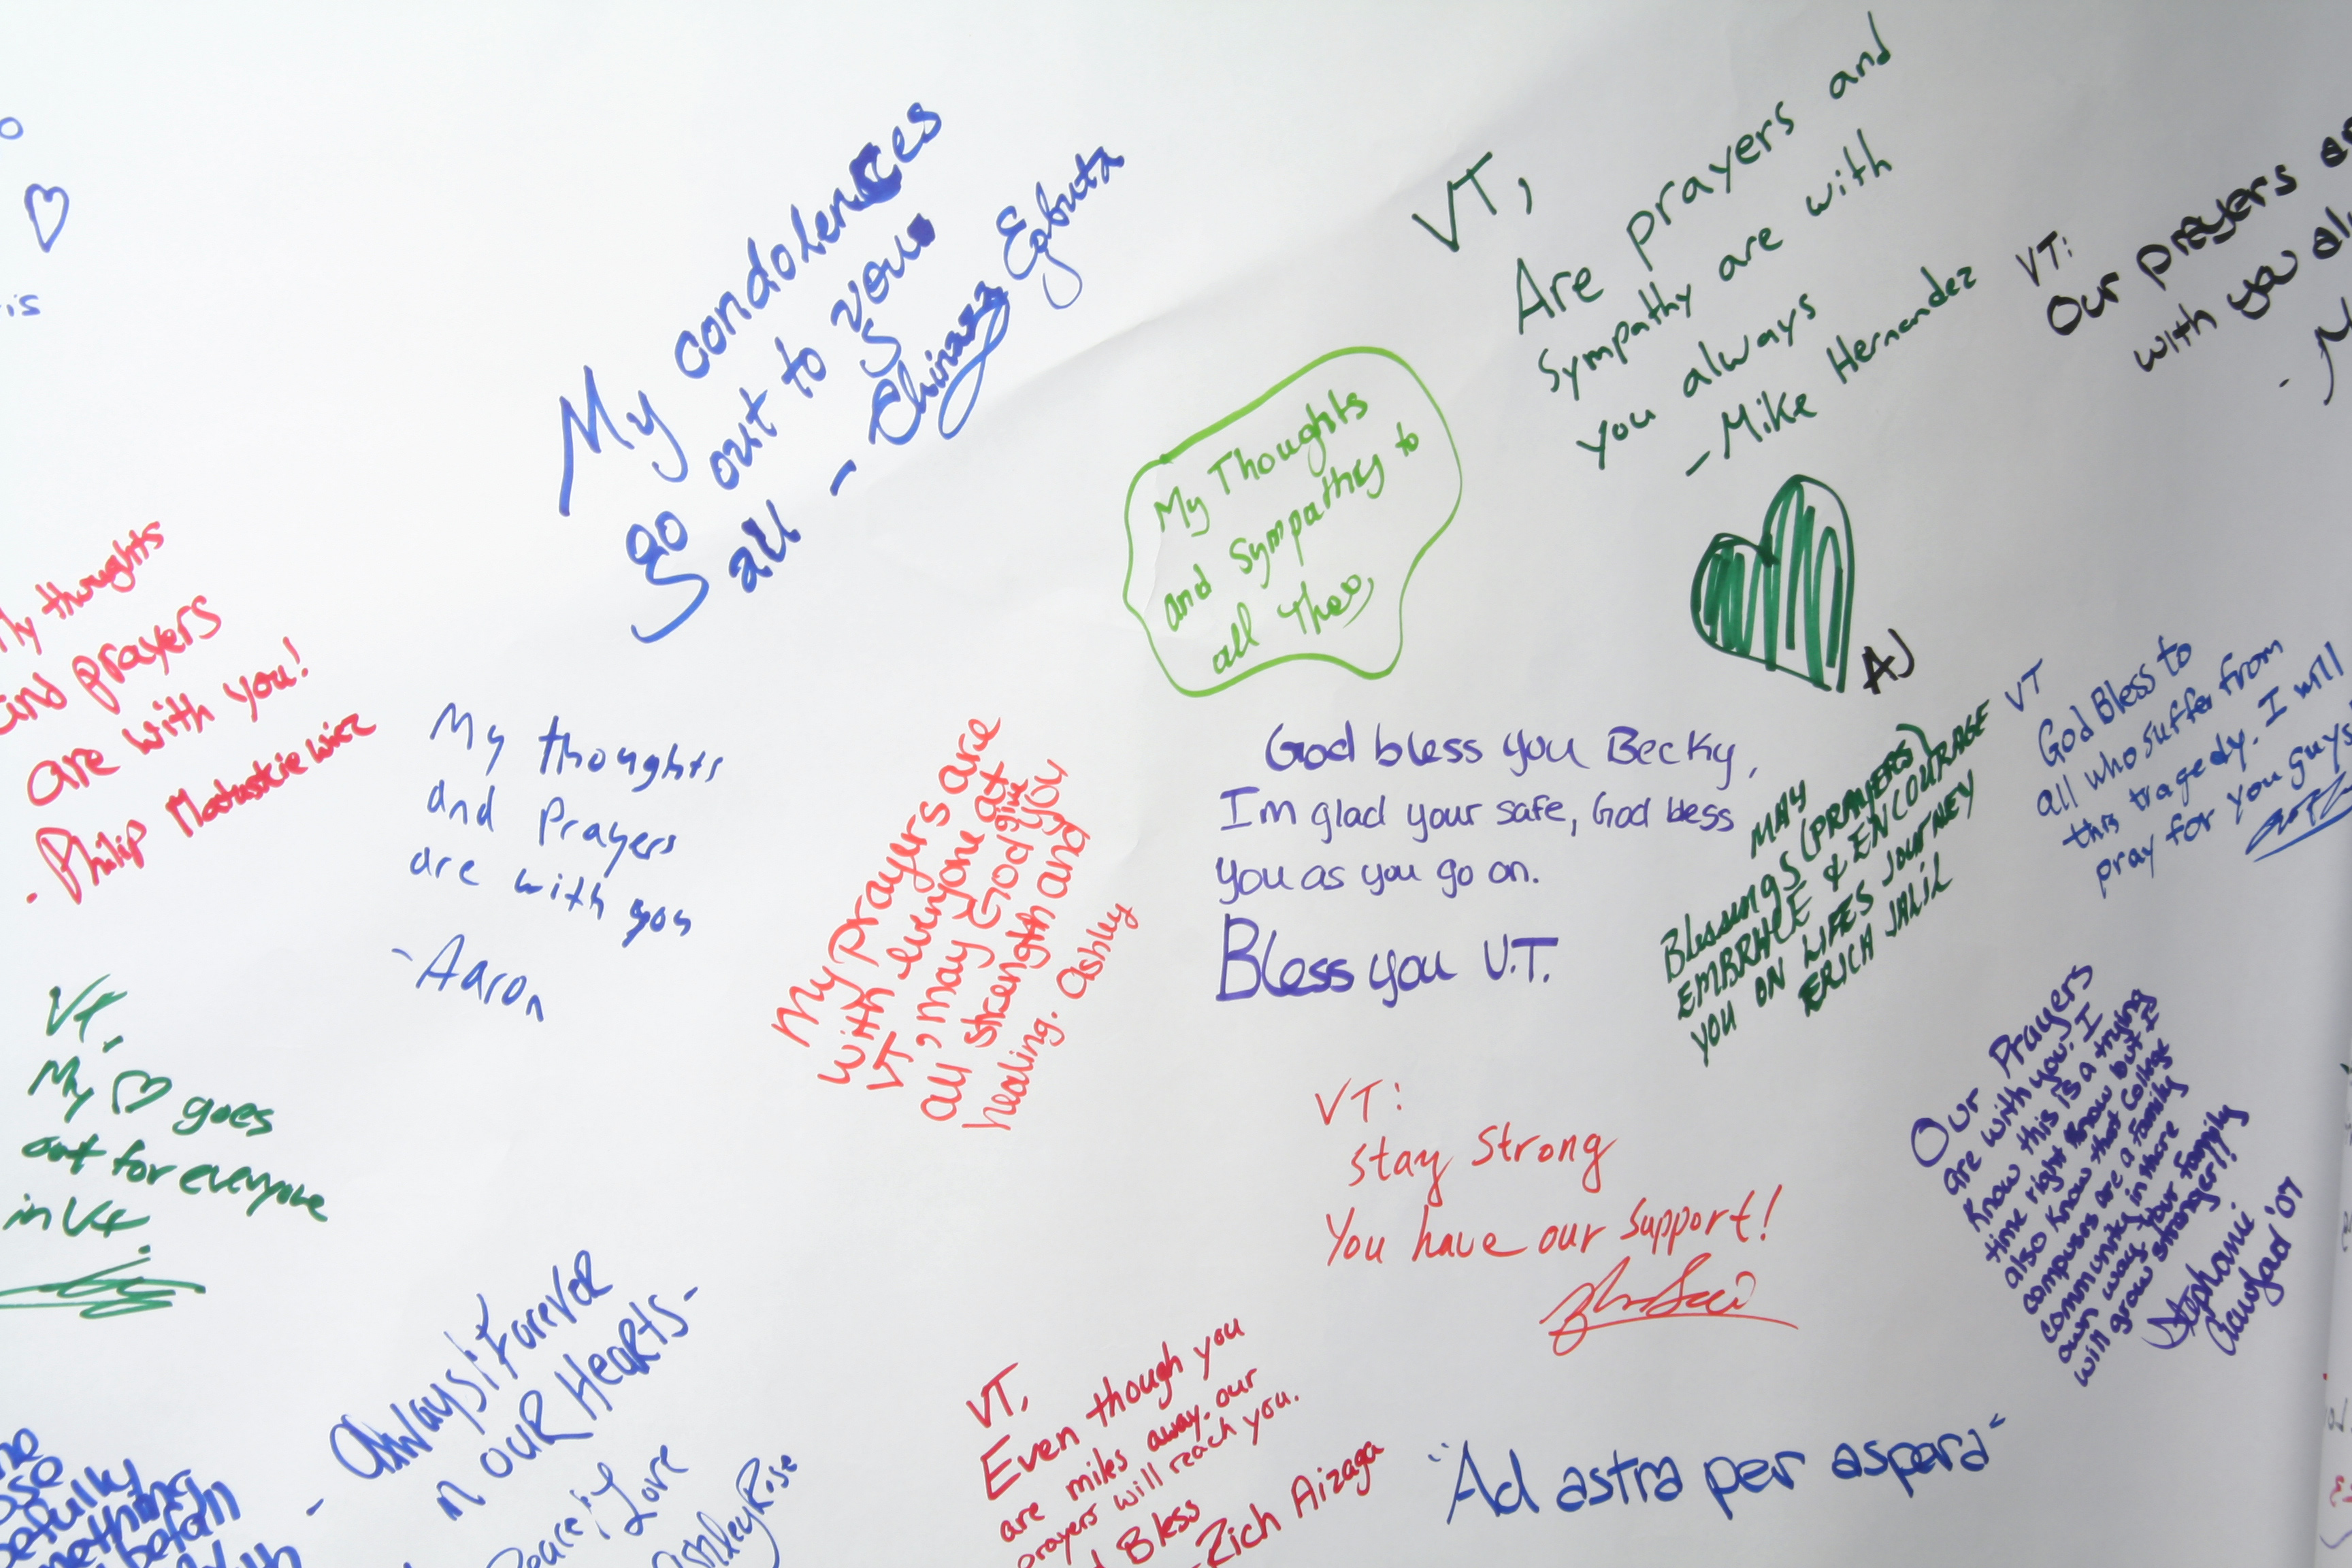 My condolences
go out to you
all - Chinaza Egbuta
VT,
Are prayers and
Sympathy are with
you always
- Mike Hernandez
VT:
Our prayers
with you
My Thoughts
and Sympathy to
all
AJ
thoughts
and prayers
are with you!
- Philip Matuskiewicz
My thoughts
and Prayers
are with you
- Aaron
My prayers are
with everyone at
VT, may God give
all strength and you
healing. Ashley
God bless you Becky,
I'm glad your safe, God bess
you as you go on.
Bless you V.T.
MAY
Blessings (PRAYERS)
EMBRACE & ENCOURAGE
YOU ON LIFES JOURNEY
ERICH JALIL
VT
God Bless to
all who suffer from
this tragedy. I will
pray for you guys
VT,
My ♡ goes
out for everyone
in VT.
VT:
stay Strong
You have our support!
Our Prayers
are with you. I
Know this is a trying
time right know but I
also know that college
campuses are a family
community in there
own way. Your family
will grow stronger!!
Stephanie
Crawford '07
- Always & Forever
n ouR HeaRts -
Peace & Love
AshleyRose
VT,
Even though you
are miles away, our
prayers will reach you.
Bless
- Zich Aizaga
"Ad astra per aspera"